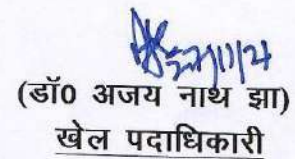 (डॉ0 अजय नाथ झा)
खेल पदाधिकारी